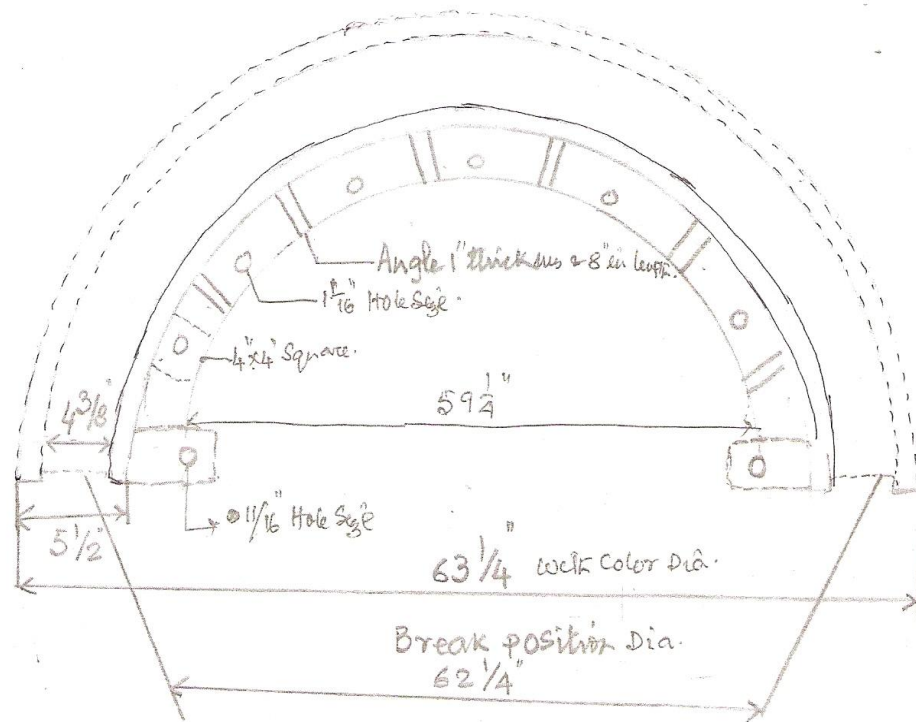 Angle 1" thickness & 8" in length.
1 1/16" Hole Size.
4"x4" Square.
59 1/4"
4 3/8"
11/16" Hole Size
5 1/2"
63 1/4" with Color Dia.
Break position Dia.
62 1/4"